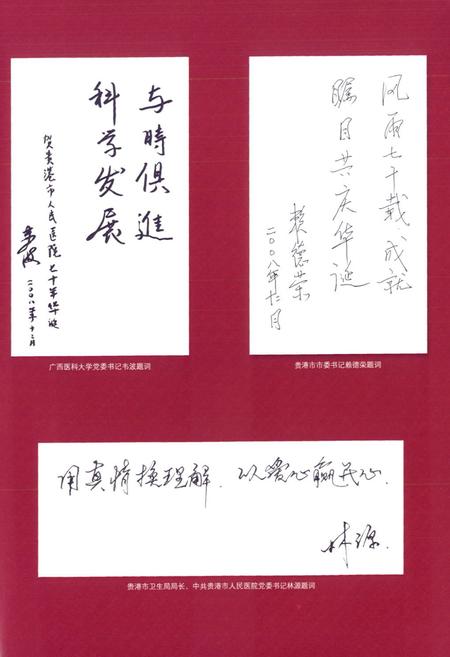 与時俱進
科学发展
贺贵港市人民医院七十年华诞
韦波
二〇〇八年十二月
广西医科大学党委书记韦波题词
风雨七十载、成就
瞩目共庆华诞
赖德荣
二〇〇八年十二月
贵港市市委书记赖德荣题词
用真情换理解、以爱心赢民心.
林源.
贵港市卫生局局长、中共贵港市人民医院党委书记林源题词